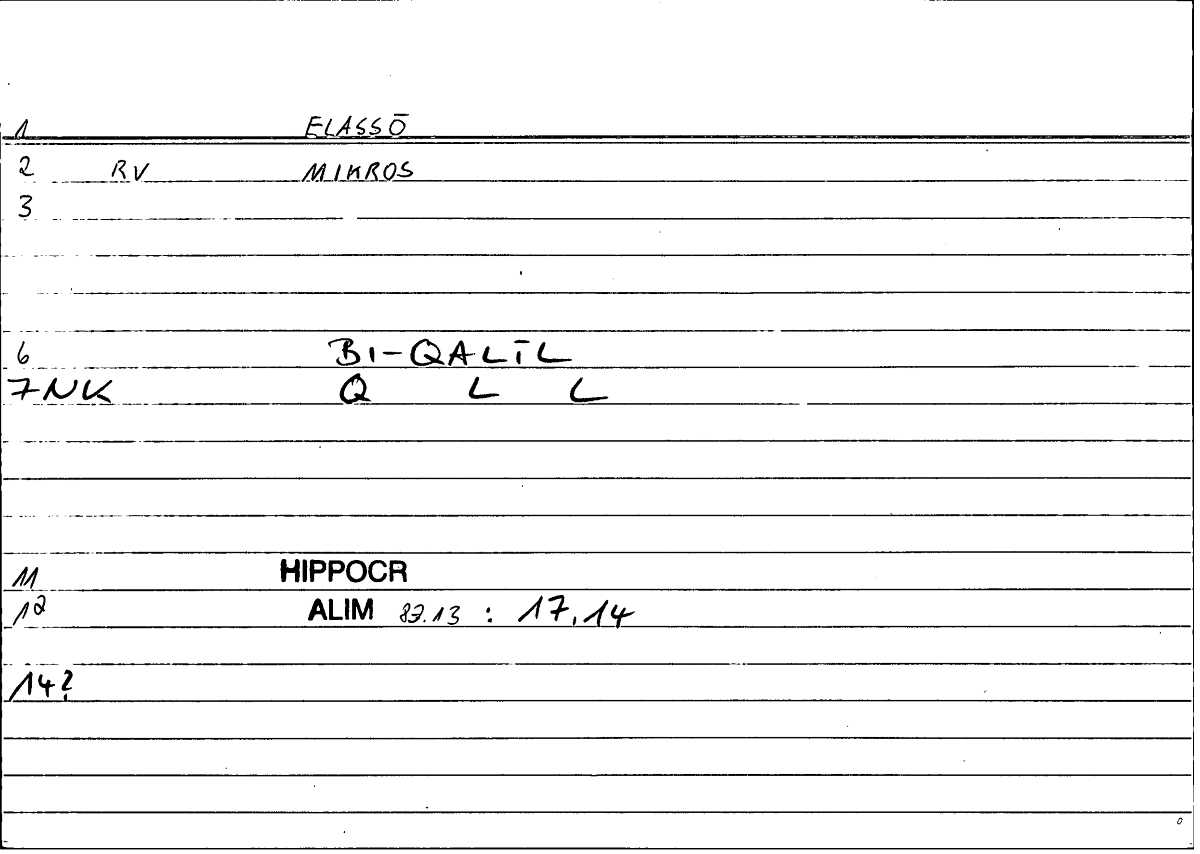 1 ELASSŌ
2 RV MIKROS
3
6 BI-QALĪL
7NK Q L L
11 HIPPOCR
12 ALIM 83.13 : 17,14
14?
0